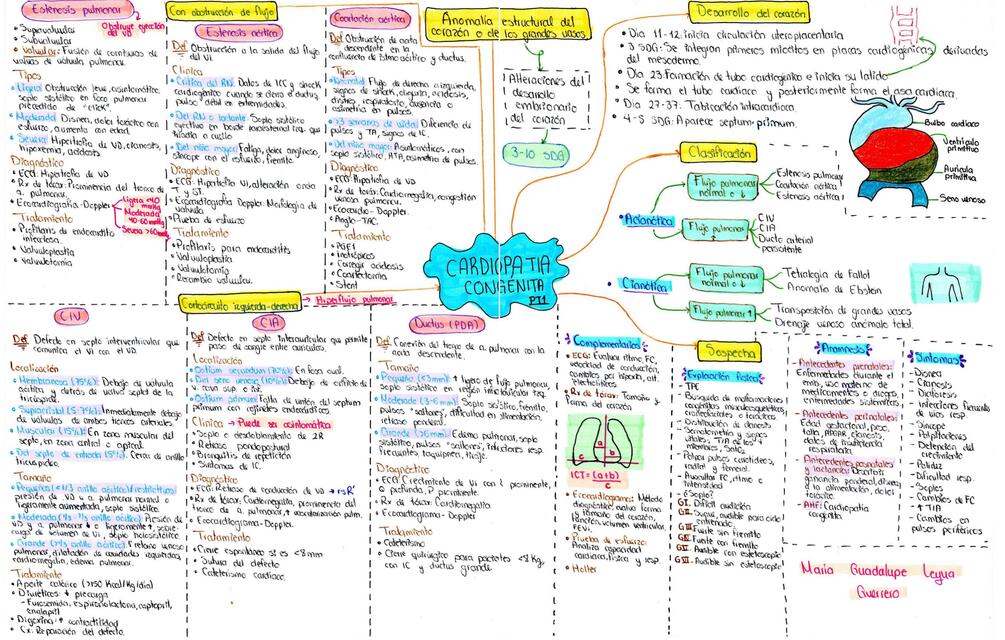 Estenosis pulmonar
Obstruye eyección del VD
• Supravalvular
• Subvalvular
• Valvular: Fusión de comisuras de
valvas de válvula pulmonar.
Tipos
• Ligera: Obstrucción leve, asintomático,
soplo sistólico en foco pulmonar
precedido de "click".
• Moderada: Disnea, dolor torácico con
esfuerzo, aumenta con edad.
• Severa: Hipertrofia de VD, cianosis,
hipoxemia, acidosis.
Diagnóstico
• ECG: Hipertrofia de VD
• Rx de tórax: Prominencia del tronco de
a. pulmonar.
• Ecocardiografia-Doppler
Ligera <40 mmHg
Moderada 40-60 mmHg
Severa >60 mmHg
Tratamiento
• Profilaxis de endocarditis
infecciosa.
• Valvuloplastia
• Valvulotomia
Con obstrucción de flujo
Estenosis aórtica
Def Obstrucción a la salida del flujo
del VI.
Clínica
• Crítica del RN: Datos de ICC y shock
cardiogénico cuando se cierra el ductus,
pulso débil en extremidades.
• Del RN o lactante: Soplo sistólico
eyectivo en borde paraesternal izq. que
irradia a cuello
• Del niño mayor: Fatiga, dolor anginoso,
síncope con el esfuerzo, frémito.
Diagnóstico
• ECG: Hipertrofia VI, alteración onda
T y ST.
• Ecocardiografia Doppler: Morfología de
válvula
• Prueba de esfuerzo
Tratamiento
• Profilaxis para endocarditis
• Valvuloplastia
• Valvulotomia
• Recambio valvular.
Coartación aórtica
Def Obstrucción de aorta
descendente en la
confluencia de istmo aórtico y ductus.
Tipos
• Neonatal: Flujo de derecha a izquierda,
signos de shock, oliguria, acidosis,
distrés respiratorio, ausencia o
asimetría en pulsos.
Diferencia de
pulsos y TA, signos de IC.
• Del niño mayor: Asintomáticos, con
soplo sistólico, HTA, asimetría de pulsos.
Diagnóstico
• ECG: Hipertrofia de VD
• Rx de tórax: Cardiomegalia, congestión
venosa pulmonar.
• Ecocardio-Doppler.
• Angio-TAC.
Tratamiento
• PGE1
• Inotrópicos
• Corregir acidosis
• Coartectomia
• Stent
Anomalía estructural del
corazón o de los grandes vasos
Alteraciones del
desarollo
embrionario
del corazón
3-10 SDG
CARDIOPATIA
CONGENITA
PT1
Desarrollo del corazón
• Dia 11-12: inicia circulación uteroplacentaria
• 3 SDG: Se integran primeros miocitos en placas cardiogénicas derivadas
del mesodermo.
• Dia 23: Formación de tubo cardiogénico e inicia su latido
• Se forma el tubo cardiaco y posteriormente forma el asa cardiaca.
• Dia 27-37: Tabicación intracardiaca
• 4-5 SDG: Aparece septum primum.
Bulbo cardiaco
Ventriculo
primitivo
Auricula
primitiva
Seno venoso
Clasificación
• Acianótica
Flujo pulmonar
normal o ↓
Estenosis pulmonar
Coartación aórtica
Estenosis aórtica
Flujo pulmonar
↑
CIV
CIA
Ducto arterial
persistente
• Cianótica
Flujo pulmonar
normal o ↓
Tetralogia de Fallot
Anomalia de Ebstein
Flujo pulmonar ↑
Transposición de grandes vasos
Drenaje venoso anómalo total.
Cortocircuito izquierda-derecha → Hiperflujo pulmonar
CIV
Def Defecto en septo interventricular que
comunica el VI con el VD.
Localización
• Membranosa (75%): Debajo de válvula
aórtica y detrás de valva septal de la
tricúspide.
• Supracristal (5-7%): Inmediatamente debajo
de válvulas de ambos troncos arteriales
• Muscular (15%): En zona muscular del
septo, en zona central o apical.
• Del septo de entrada (5%): Cerca de anillo
tricuspídeo.
Tamaño
• Pequeñas (<1/3 anillo aórtico)(restrictivas):
presión de VD y a. pulmonar normal o
ligeramente aumentada, soplo sistólico.
• Moderada (1/3-2/3 anillo aórtico): Presión de
VD y a. pulmonar ↑ o ligeramente ↑, sobre-
carga de volumen de VI, soplo holosistólico.
• Grande (>2/3 anillo aórtico): Retorno venoso
pulmonar, dilatación de cavidades izquierdas,
cardiomegalia, edema pulmonar.
Tratamiento
• Aporte calórico (>150 Kcal/Kg/dia)
• Diuréticos: ↓ precarga
- Furosemida, espironolactona, captopril,
enalapril
• Digoxina: ↑ contractilidad
• Cx: Reparación del defecto.
CIA
Def Defecto en septo interauricular que permite
paso de sangre entre aurículas.
Localización
• Ostium secundum (70%): En fosa oval.
• Del seno venoso (10%): Debajo de orificio de
v. cava sup. o inf.
• Ostium primum: Falla de unión del septum
primum con cojinetes endocárdicos.
Clínica → Puede ser asintomática
• Soplo o desdoblamiento de 2R
• Retraso pondoestatural
• Bronquitis de repetición
• Síntomas de IC.
Diagnóstico
• ECG: Retraso de conducción de VD → rsR'
• Rx de tórax: Cardiomegalia, prominencia del
tronco de a. pulmonar, ↑ vascularización pulm.
• Ecocardiograma-Doppler.
Tratamiento
• Cierre espontáneo si es <8mm
• Sutura del defecto
• Cateterismo cardiaco.
Ductus (PDA)
Def Conexión del tronco de a. pulmonar con la
aorta descendente.
Tamaño
• Pequeño (<3mm): ↑ ligero de flujo pulmonar,
soplo sistólico en región infraclavicular izq.
• Moderado (3-6mm): Soplo sistólico, frémito,
pulsos "saltones", dificultad en alimentación,
retraso ponderal.
• Grande (>6mm): Edema pulmonar, soplo
sistólico, pulsos "saltones", infecciones resp.
frecuentes, taquipnea, tiraje.
Diagnóstico
• ECG: Crecimiento de VI con R prominente,
Q profunda, P prominente.
• Rx de tórax: Cardiomegalia
• Ecocardiograma-Doppler
Tratamiento
• Cateterismo
• Cierre quirúrgico para pacientes <8 Kg,
con IC y ductus grande.
Complementarios
• ECG: Evaluar ritmo, FC,
velocidad de conducción,
cambios por hipoxia, alt.
electrolíticas
• Rx de Tórax: Tamaño y
forma del corazón.
a
b
c
ICT = (a+b)
c
• Ecocardiograma: Método
diagnóstico, evalúa forma
y tamaño del corazón,
función, volumen ventricular,
FEVI.
• Prueba de esfuerzo:
Analiza capacidad
cardiaca, fisica y resp.
• Holter
Sospecha
Exploración física
TPE
• Búsqueda de malformaciones
congénitas musculoesqueléticas
craneofaciales o cardiacas
• Distribución de cianosis
• Somatometria y signos
vitales, TA en 4
miembros, SatO2
• Palpar pulsos carotídeos,
radial y femoral.
• Auscultar FC, ritmo e
intensidad
• ¿Soplo?
GI: Difícil audición
GII: Suave, audible para oido
entrenado
GIII: Fuerte sin frémito
GIV: Fuerte con frémito
GV: Audible con estetoscopio
GVI: Audible sin estetoscopio
Anamnesis
• Antecedentes prenatales:
Enfermedades durante el
emb., uso materno de
medicamentos o drogas,
enfermedades sistémicas
• Antecedentes perinatales:
Edad gestacional, peso,
talla, APGAR, cianosis,
datos de dificultad
respiratoria.
• Antecedentes posnatales
y lactancia: Desarrollo,
ganancia ponderal, disnea a
la alimentación, dolor
torácico.
• AHF: Cardiopatia
congénita.
Síntomas
• Disnea
• Cianosis
• Diaforesis
• Infecciones frecuentes
de vías resp.
• Síncope
• Palpitaciones
• Detención del
crecimiento
• Palidez
• Dificultad resp.
• Soplos
• Cambios de FC
• ↑TA
• Cambios en
pulsos periféricos
María Guadalupe Leyva
Guerrero